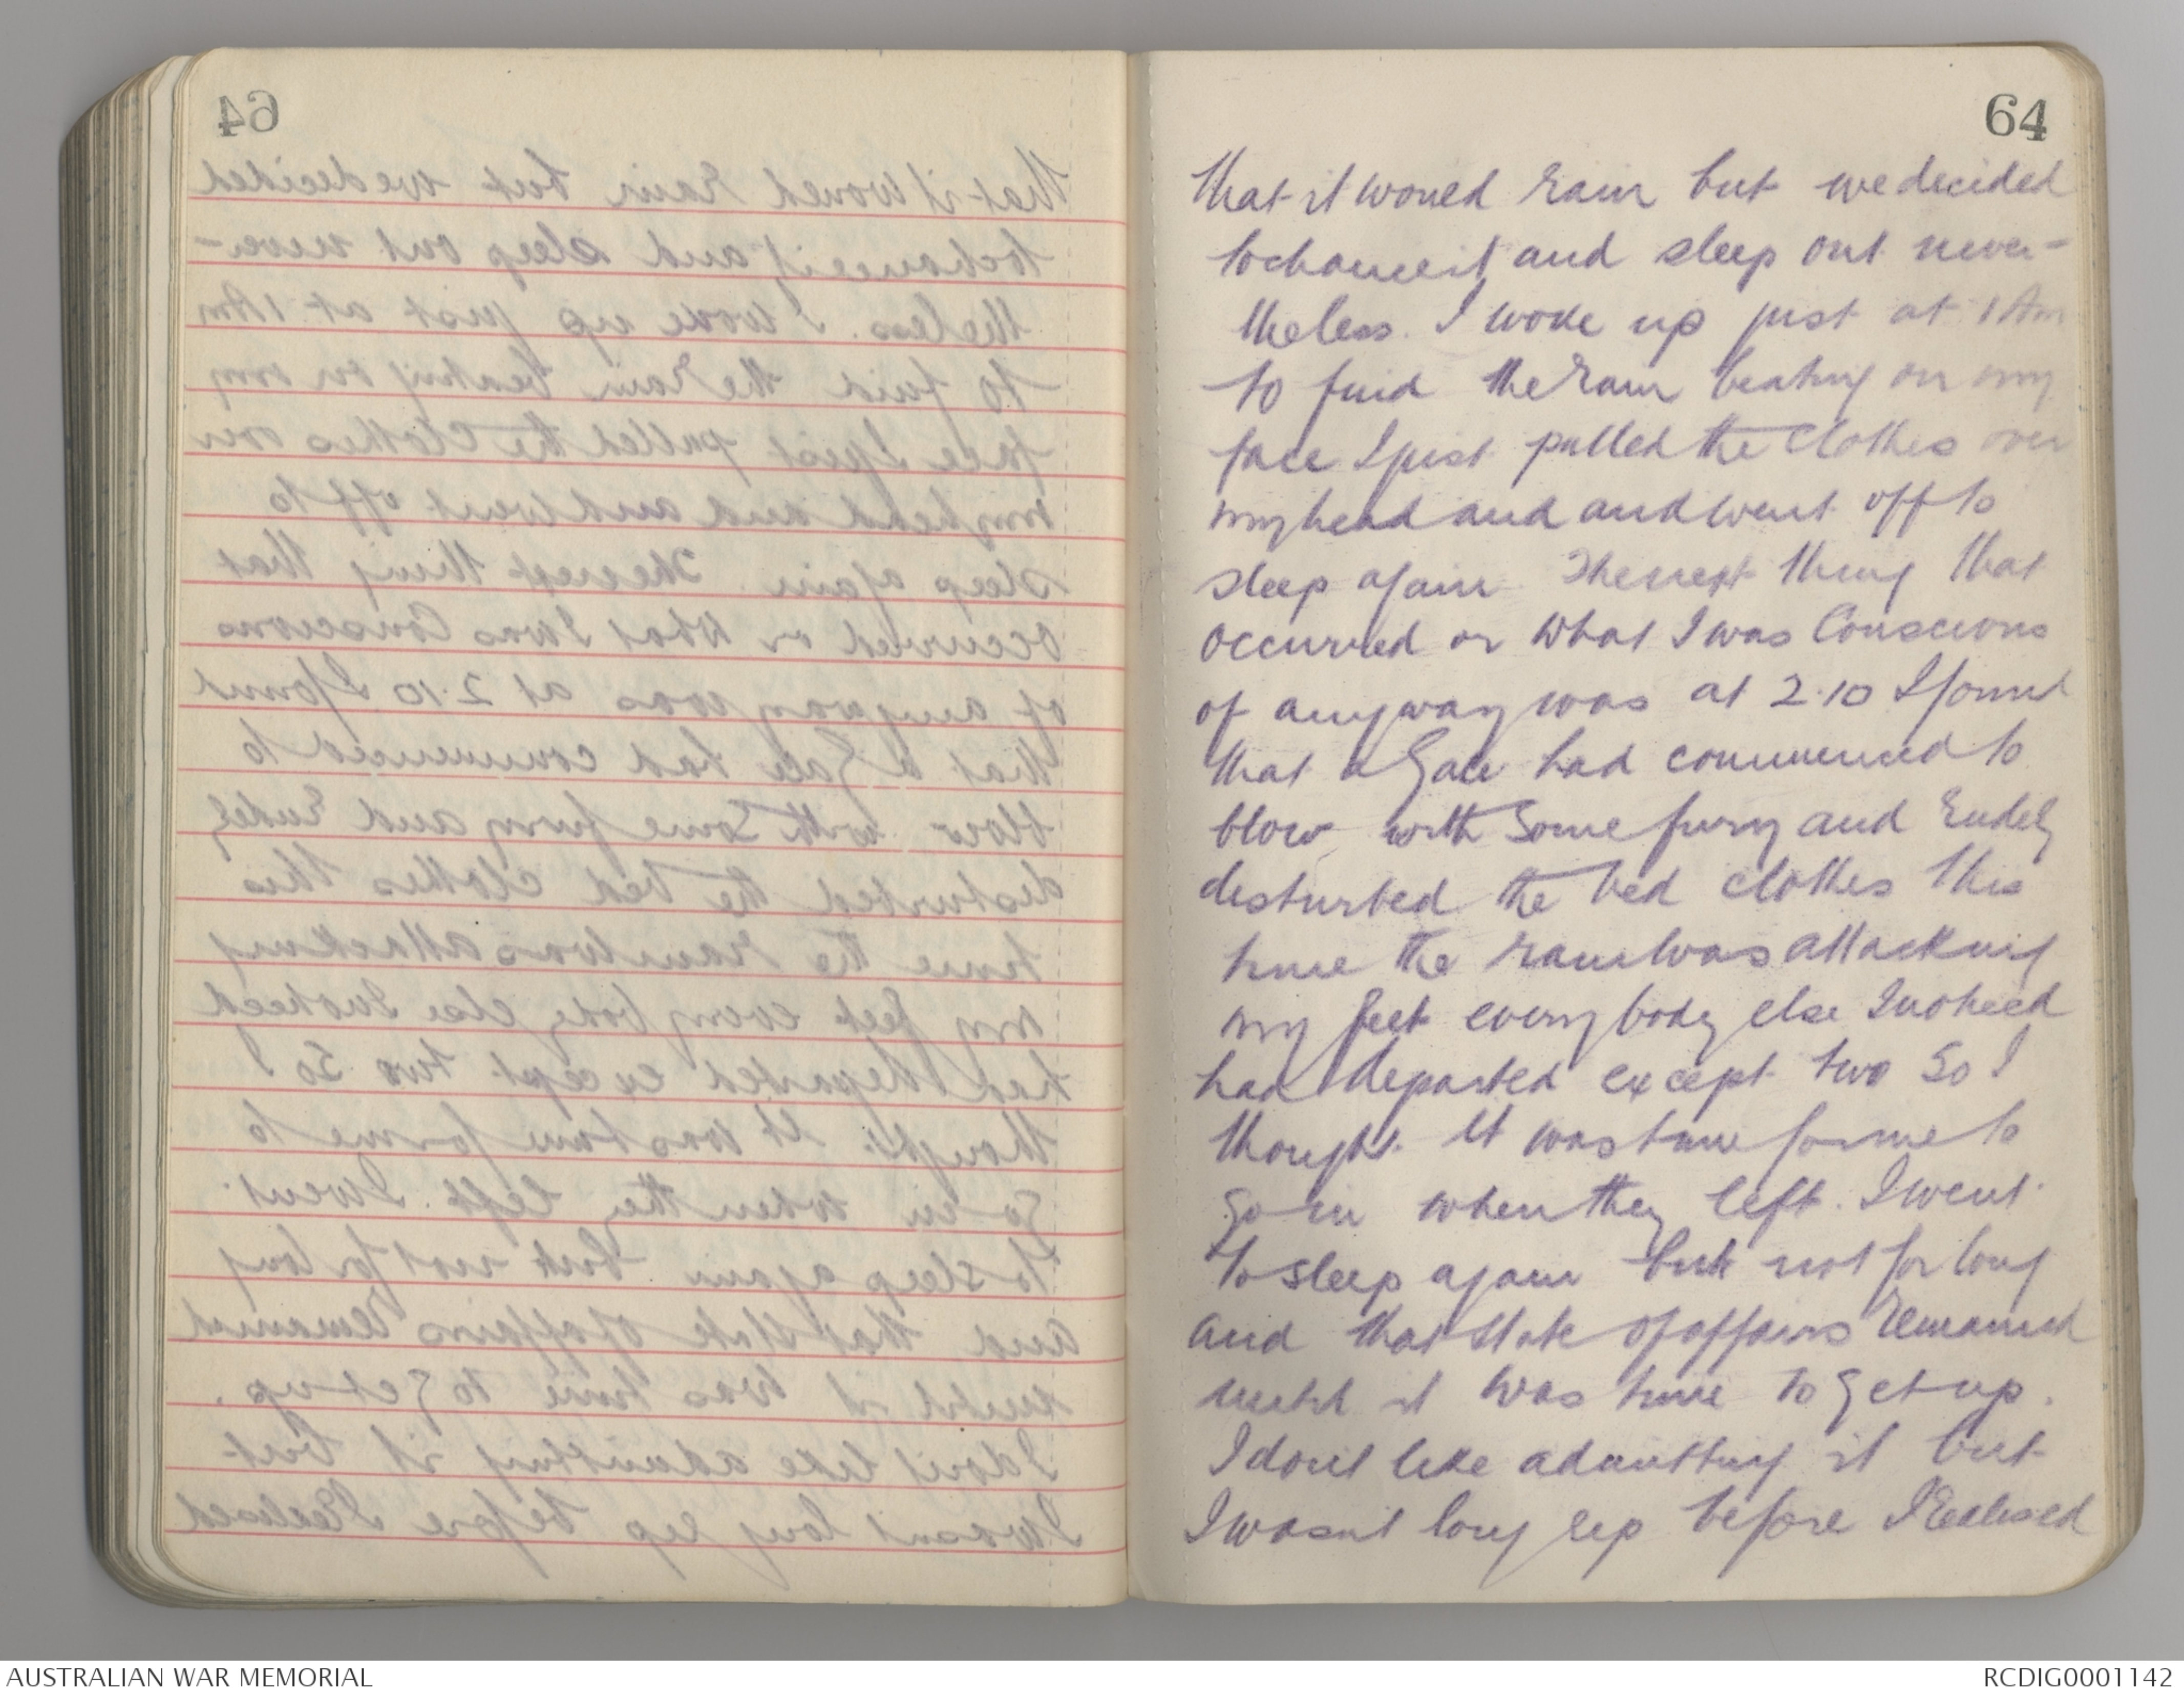 64
that it would rain but we decided
to chance it and sleep out never-
theless. I woke up just at 1 Am
to find the rain beating on my
face I just pulled the clothes over
my head and and went off to
sleep again The next thing that
occurred or what I was Conscious
of anyway was at 2.10 I found
that a Gale had commenced to
blow with some fury and rudely
disturbed the bed clothes this
time the rain was attacking
my feet every body else I noticed
had departed except two so I
thought it was time for me to
go in when they left. I went
to sleep again but not for long
and that state of affairs remained
until it was time to get up.
I don't like admitting it but
I wasn't long up before I Realised
AUSTRALIAN WAR MEMORIAL
RCDIG0001142